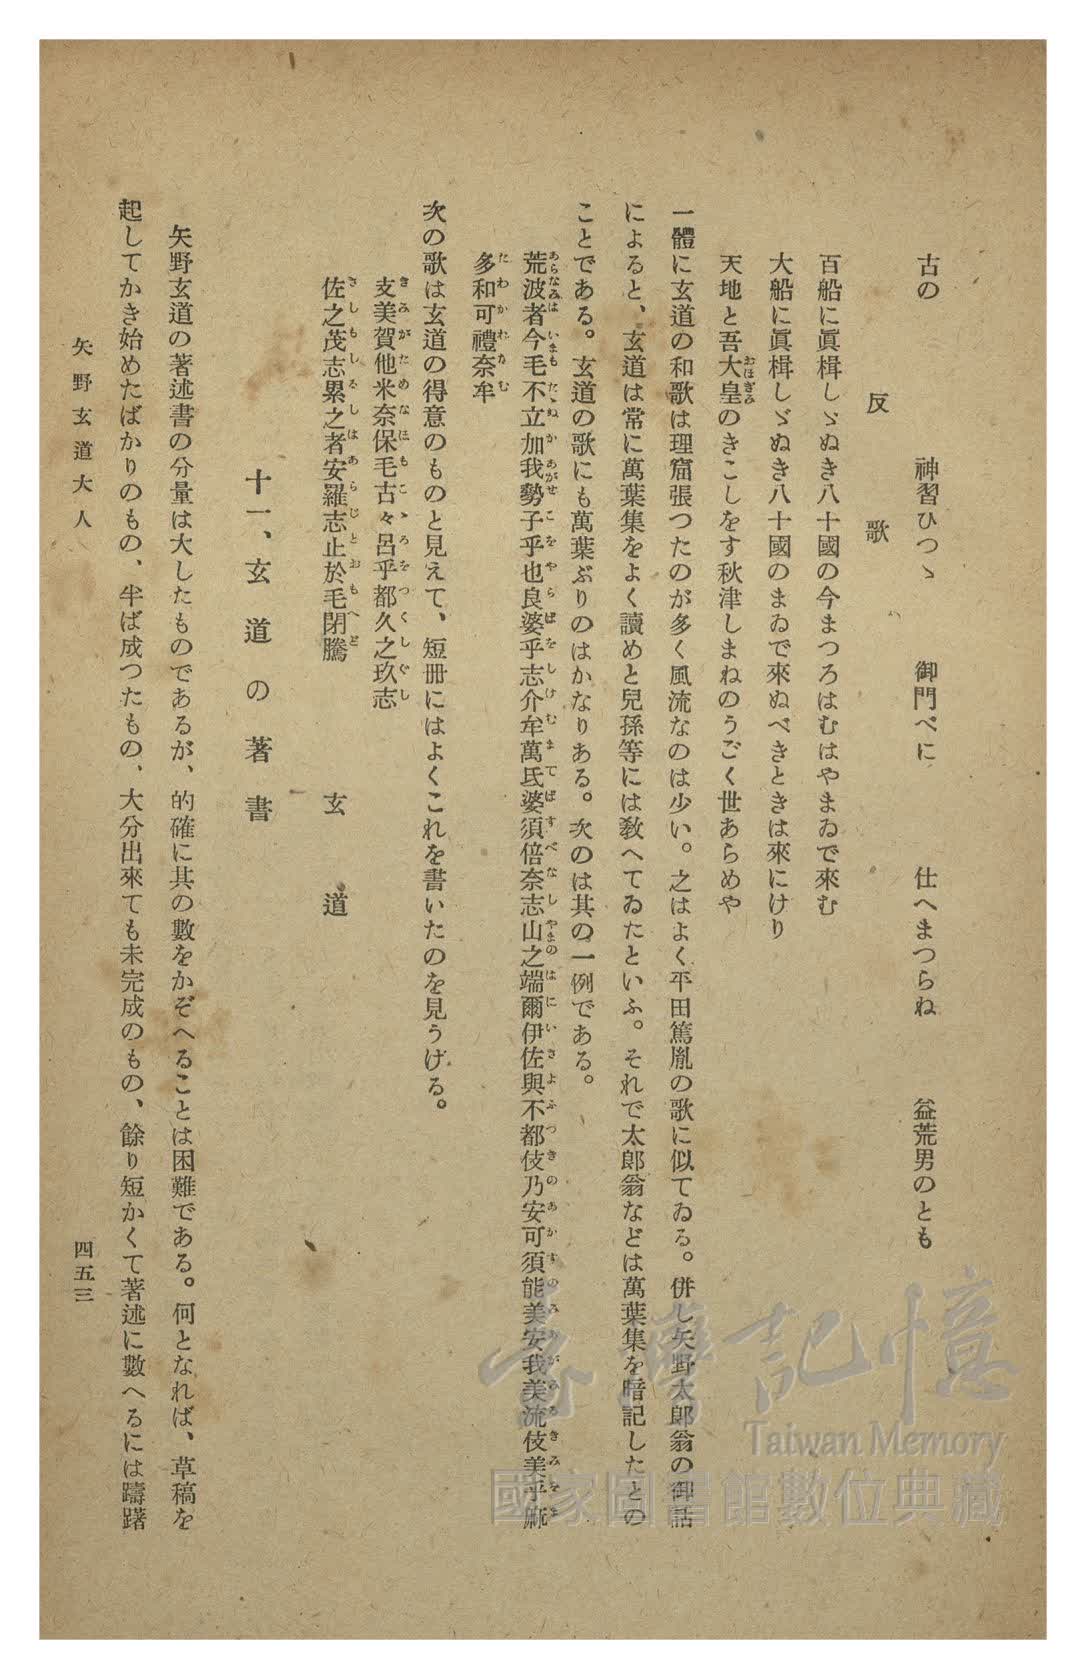 古の　神習ひつゝ　御門べに　仕へまつらね　益荒男のとも
反歌
百船に眞楫しゞぬき八十國の今まつろはむはやまゐで來む
大船に眞楫しゞぬき八十國のまゐで來ぬべきときは來にけり
天地と吾大皇のきこしをす秋津しまねのうごく世あらめや
一體に玄道の和歌は理窟張つたのが多く風流なのは少い。之はよく平田篤胤の歌に似てゐる。併し矢野太郎翁の御話
によると、玄道は常に萬葉集をよく讀めと兒孫等には教へてゐたといふ。それで太郎翁などは萬葉集を暗記したとの
ことである。玄道の歌にも萬葉ぶりのはかなりある。次のは其の一例である。
荒波者今毛不立加我勢子乎也良婆乎志介牟萬氐婆須倍奈志山之端爾伊佐與不都伎乃安可須能美安我美流伎美乎麻
多和可禮奈牟
次の歌は玄道の得意のものと見えて、短冊にはよくこれを書いたのを見うける。
支美賀他米奈保毛古々呂乎都久之玖志
佐之茂志累之者安羅志止於毛閉騰
玄道
十一、玄道の著書
矢野玄道の著述書の分量は大したものであるが、的確に其の數をかぞへることは困難である。何となれば、草稿を
起してかき始めたばかりのもの、半ば成つたもの、大分出來ても未完成のもの、餘り短かくて著述に數へるには躊躇
矢野玄道大人
四五三
臺灣記憶
Taiwan Memory
國家圖書館數位典藏